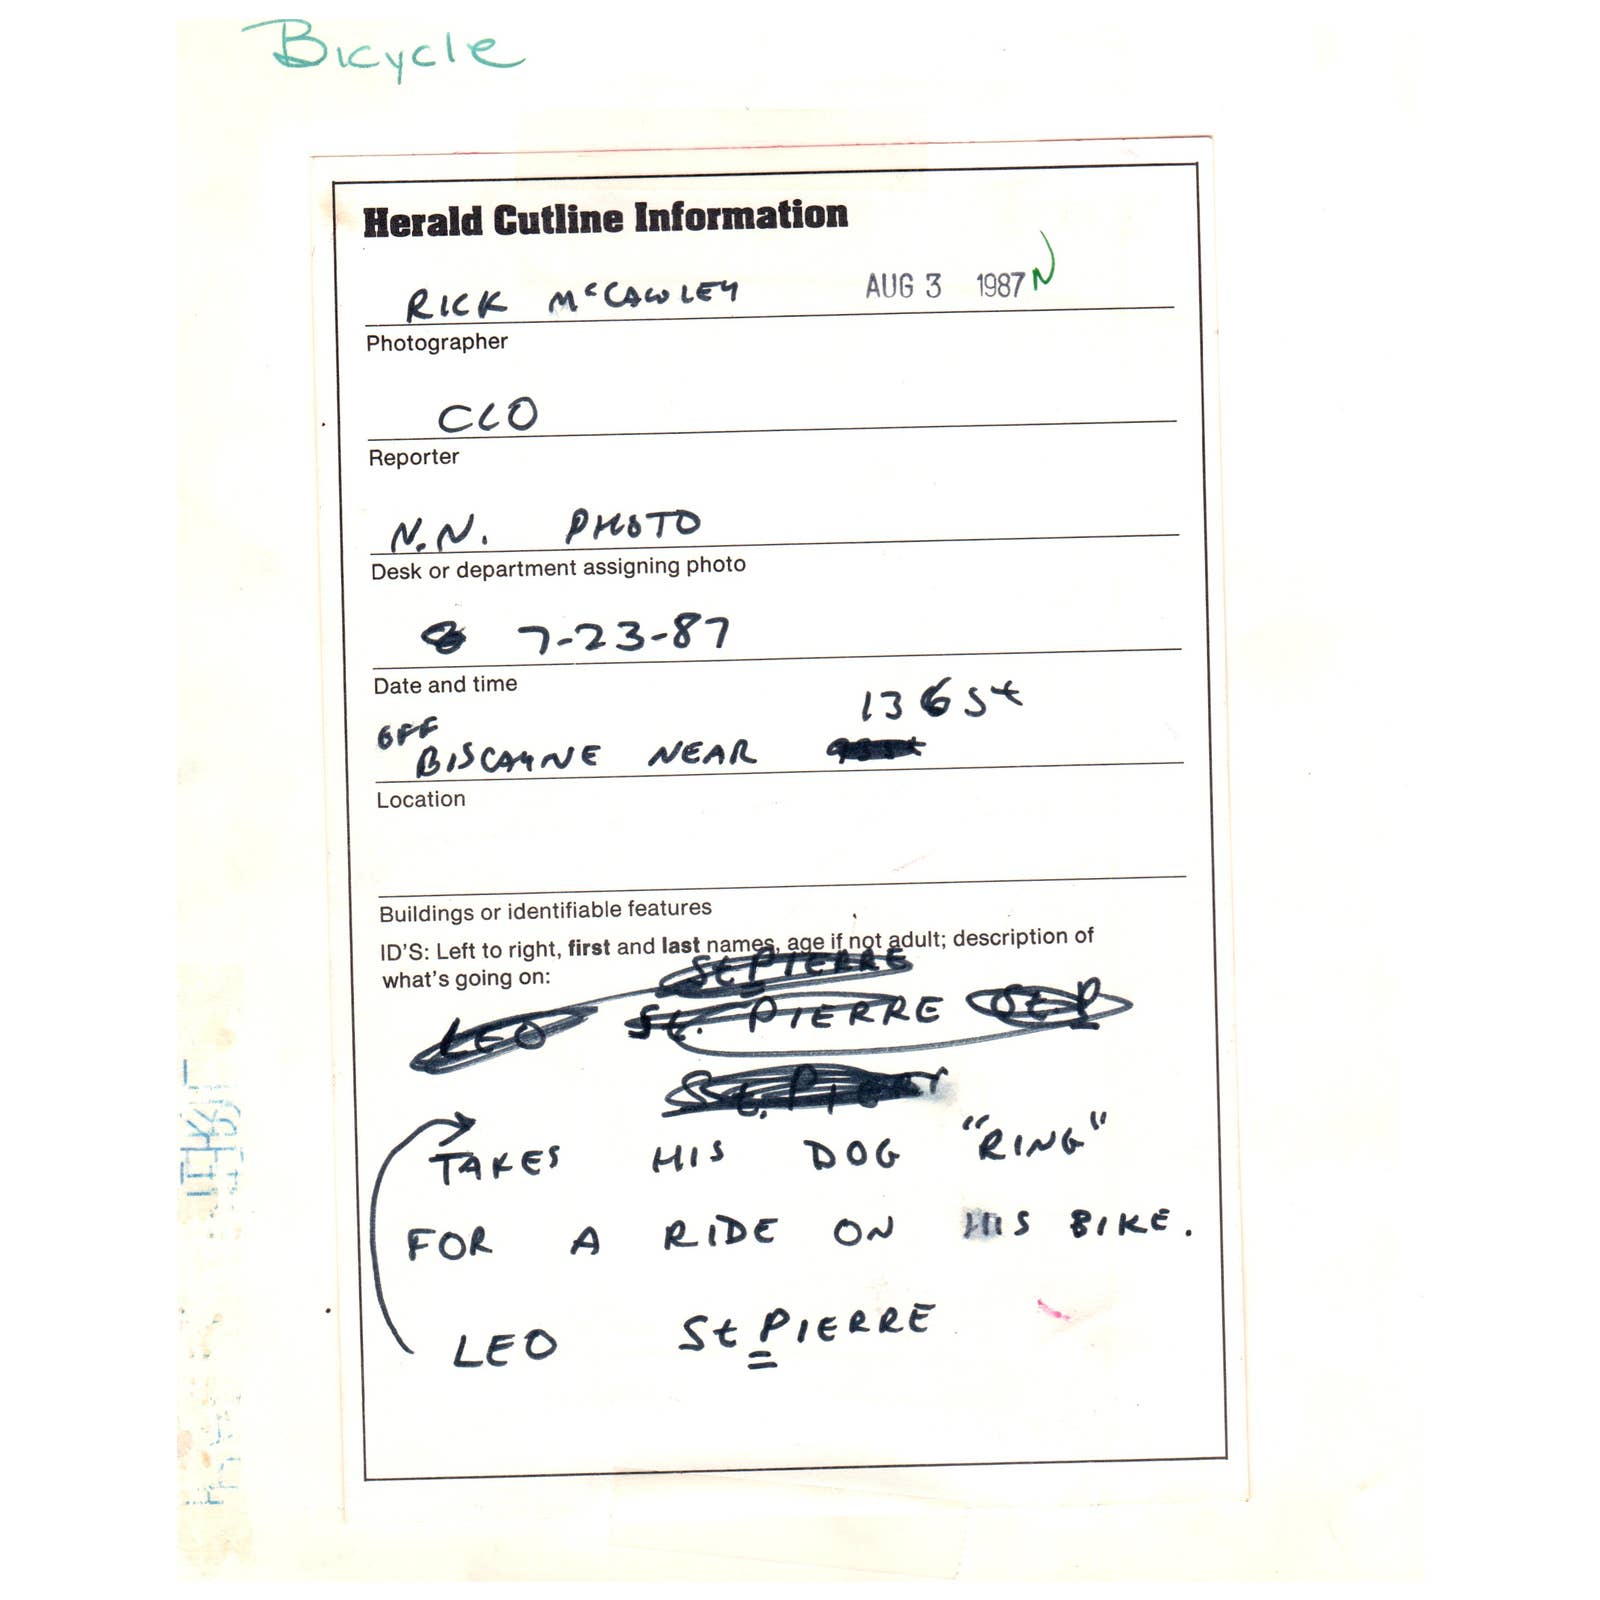 Bicycle
Herald Cutline Information
RICK McCAWLEY AUG 3 1987 N
Photographer
CLO
Reporter
N.N. PHOTO
Desk or department assigning photo
8 7-23-87
Date and time
136 St
OFF
BISCAYNE NEAR
Location
Buildings or identifiable features
ID'S: Left to right, first and last names, age if not adult; description of
what's going on:
St PIERRE
LEO St. PIERRE St P
St. Pierr
TAKES HIS DOG "RING"
FOR A RIDE ON HIS BIKE.
LEO St PIERRE